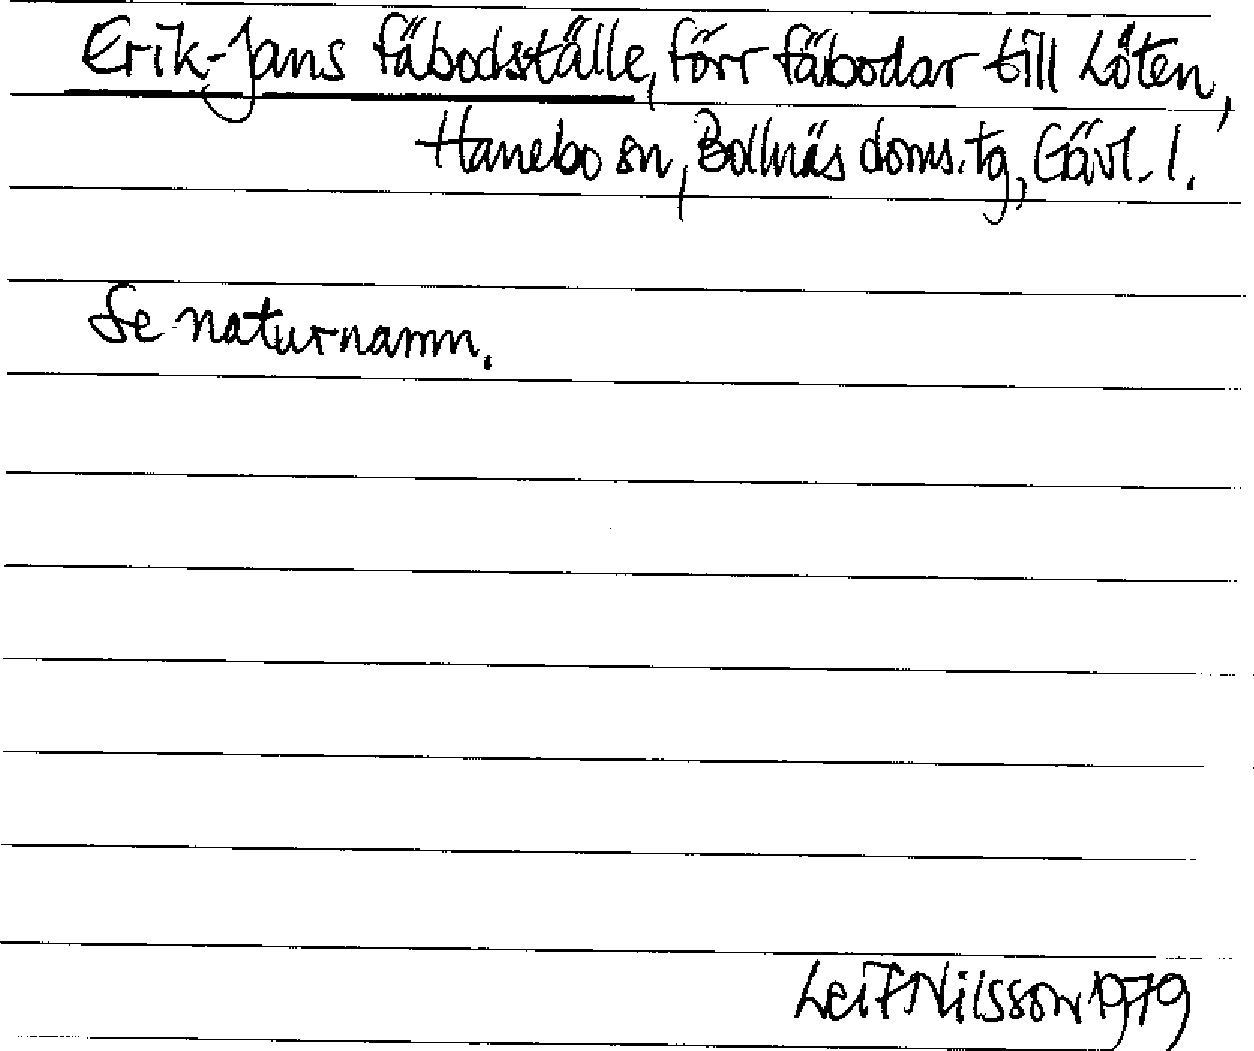 Erik-Jans fäbodställe, förr fäbodar till Löten,
Hanebo sn, Bollnäs doms.tg, Gävl. l.
Se naturnamn.
Leif Nilsson 1979